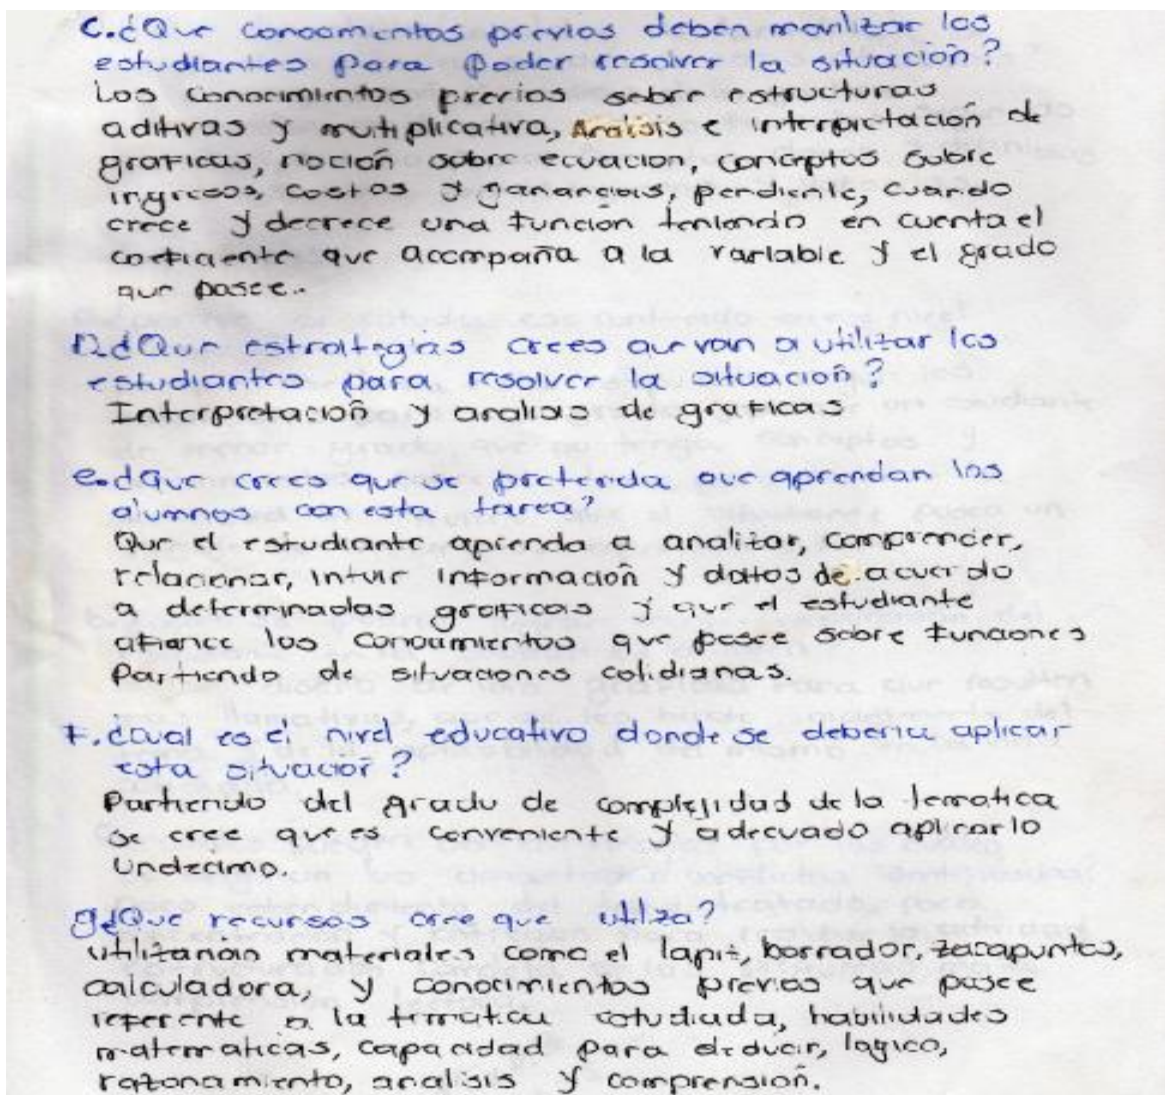 C. ¿Que conocimientos previos deben movilizar los
estudiantes para poder resolver la situación?
Los conocimientos previos sobre estructuras
aditivas y multiplicativa, Analisis e interpretación de
graficas, noción sobre ecuacion, conceptos sobre
ingresos, costos y ganancias, pendiente, cuando
crece y decrece una función teniendo en cuenta el
coeficiente que acompaña a la variable y el grado
que posee..
D. ¿Que estrategias crees que van a utilizar los
estudiantes para resolver la situación?
Interpretación y analisis de graficas
e. ¿Que crees que se pretenda que aprendan los
alumnos con esta tarea?
Que el estudiante aprenda a analizar, comprender,
relacionar, intuir información y datos de acuerdo
a determinadas graficas y que el estudiante
afiance los conocimientos que posee sobre funciones
Partiendo de situaciones cotidianas.
F. ¿cual es el nivel educativo donde se deberia aplicar
esta situación?
Partiendo del grado de complejidad de la tematica
se cree que es conveniente y adecuado aplicarlo
Undecimo.
g. ¿Que recursos cree que utiliza?
Utilizarián materiales como el lapiz, borrador, zacapuntas,
calculadora, y conocimientos previos que posee
referente a la tematica estudiada, habilidades
matematicas, capacidad para deducir, logico,
razonamiento, analisis y comprensión.